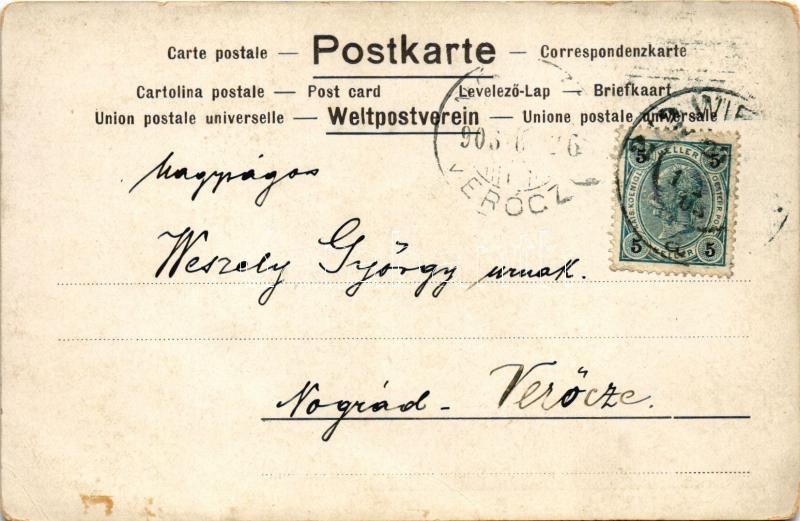 Carte postale — Postkarte — Correspondenzkarte
Cartolina postale — Post card Levelező-Lap — Briefkaart
Union postale universelle — Weltpostverein — Unione postale universale
Nagyságos
Weszely György urnak.
Nográd - Verőcze.
VERŐCZ
WIE
5 HELLER 5
5 HELLER 5